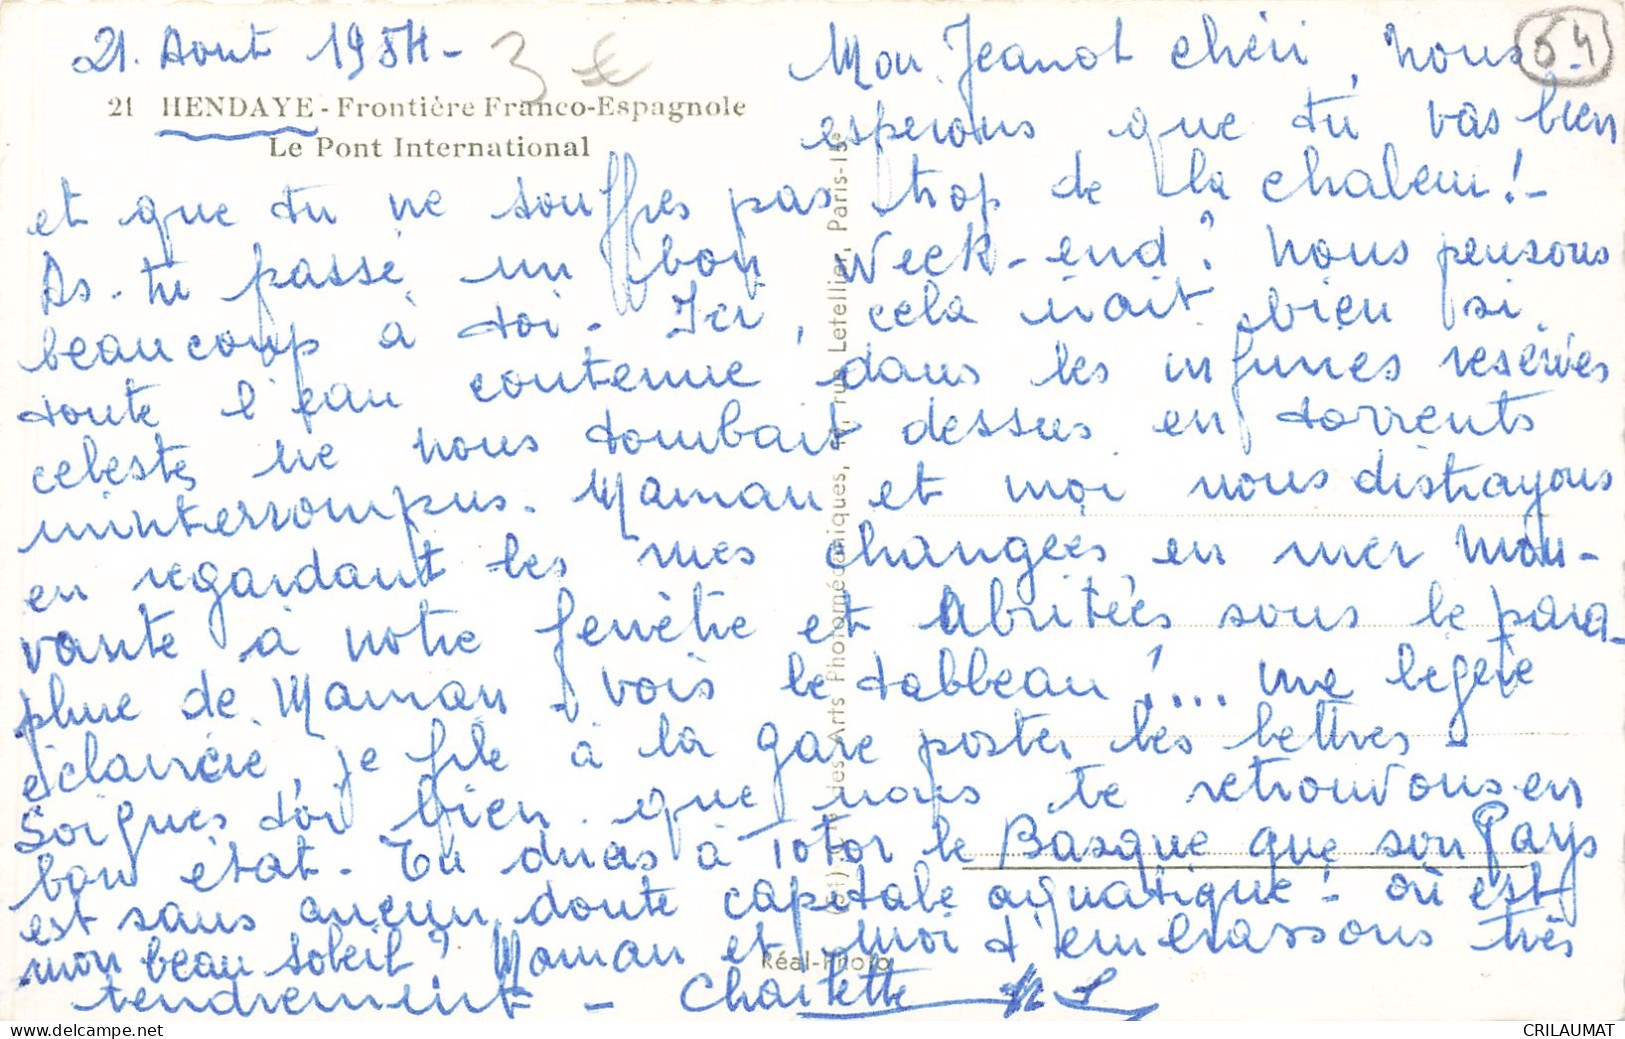 21. Aout 1954 -
3 €
64
21 HENDAYE - Frontière Franco-Espagnole
Le Pont International
Mon Jeanot chéri, nous
esperons que tu vas bien
et que tu ne souffres pas trop de la chaleur! -
As-tu passé un bon week-end? Nous pensons
beaucoup à toi - Ici, cela irait bien si
toute l'eau contenue dans les infimes reserves
celestes ne nous tombait dessus en torrents
ininterrompus. Maman et moi nous distrayons
en regardant les rues changées en mer mou-
vante à notre fenêtre et abritées sous le para-
pluie de Maman - vois le tableau!... une légère
éclaircie, je file à la gare poster les lettres -
Soignes toi bien que nous te retrouvons en
bon état - Tu diras à Totor le Basque que son Pays
est sans aucun doute capitale aquatique! - où est
mon beau soleil? Maman et moi t'embrassons très
tendrement - Charlette
des Arts Photomécaniques, rue Letellier, Paris-15e
Réal-Photo
CRILAUMAT